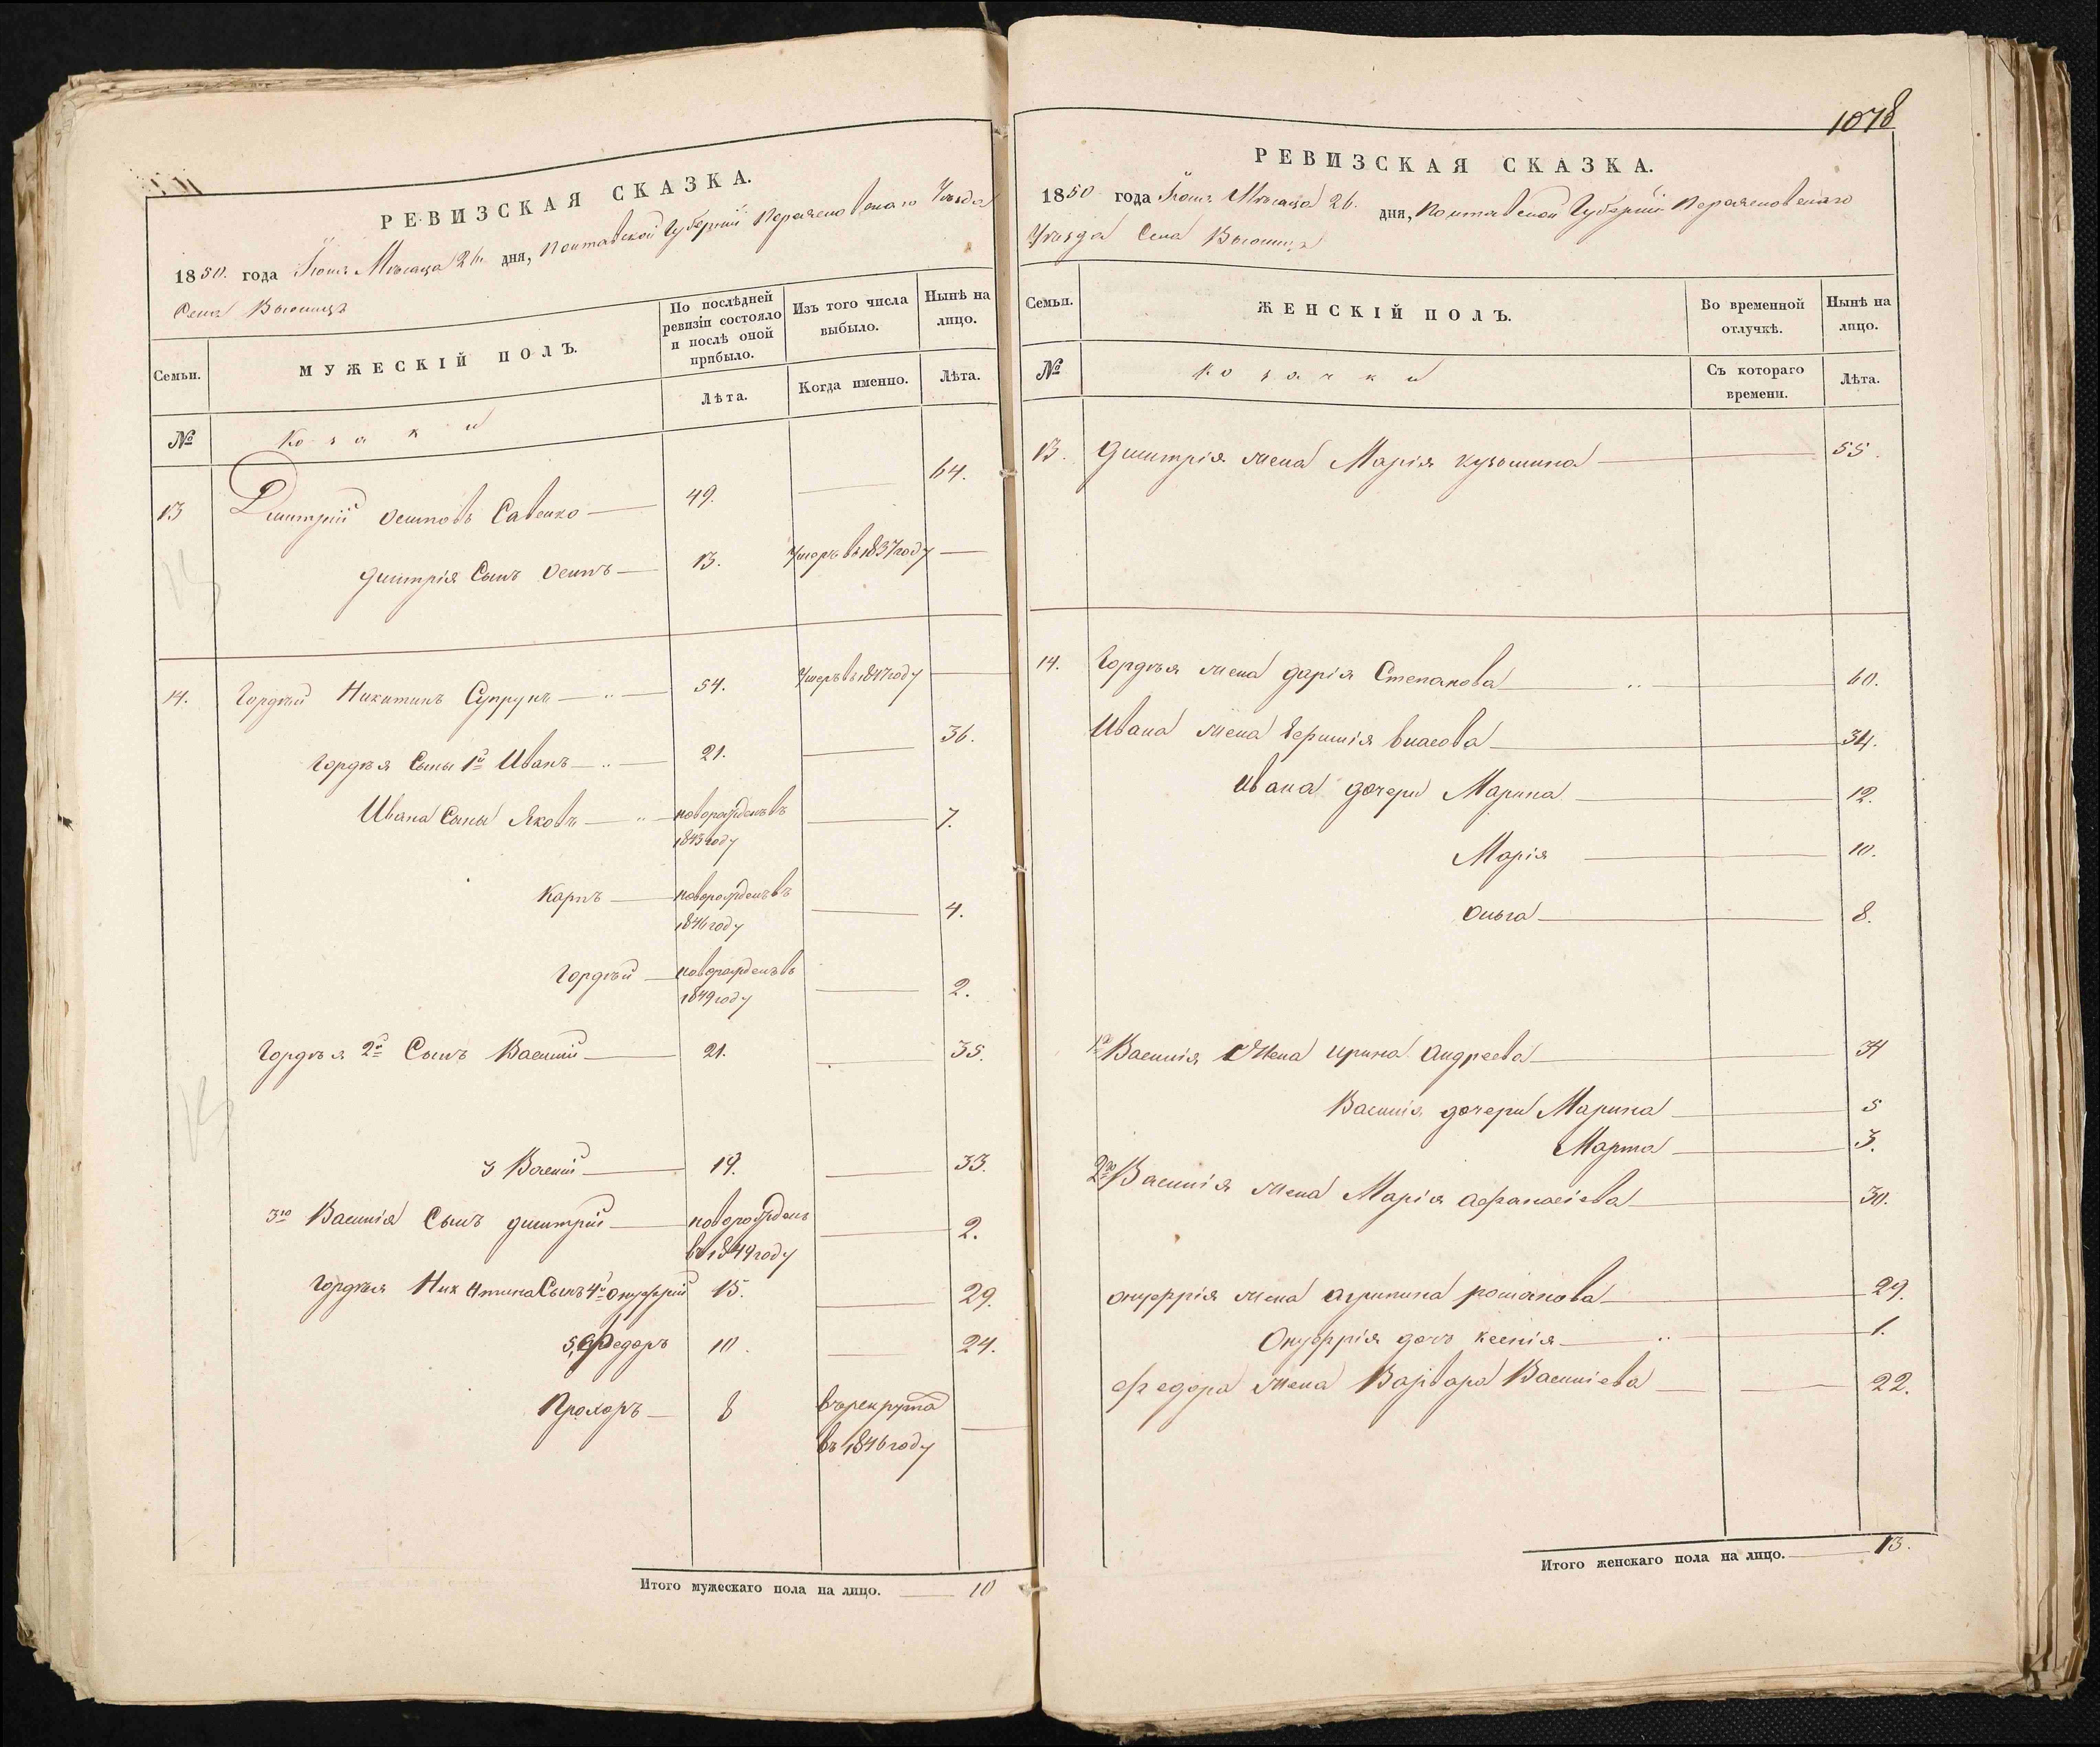 РЕВИЗСКАЯ СКАЗКА.
1850. года Іюня Мѣсяца 26. дня, Полтавской Губерніи Переяславскаго Уѣзда
Села Вьюнищъ
Семьи.
МУЖЕСКІЙ ПОЛЪ.
По послѣдней ревизіи состояло и послѣ оной прибыло.
Изъ того числа выбыло.
Нынѣ на лицо.
№
Козаки
Лѣта.
Когда именно.
Лѣта.
13 Дмитрій Осиповъ Савенко 49. 64.
Дмитрія Сынъ Осипъ 13. Умеръ въ 1837 году
14. Гордѣй Никитинъ Супрунъ 54. Умеръ въ 1847 году
Гордѣя Сыны 1й Иванъ 21. 36.
Ивана Сыны Яковъ новорожденъ въ 1843 году 7.
Карпъ новорожденъ въ 1846 году 4.
Гордѣй новорожденъ въ 1849 году 2.
Гордѣя 2й Сынъ Василій 21. 35.
3 Василій 19. 33.
3го Василія Сынъ Дмитрій новорожденъ въ 1849 году 2.
Гордѣя Никитина Сынъ 4й Онуфрій 15. 29.
5, Федоръ 10. 24.
Прохоръ 8 въ рекрута въ 1846 году
Итого мужескаго пола на лицо. 10
1078
РЕВИЗСКАЯ СКАЗКА.
1850 года Іюня Мѣсяца 26. дня, Полтавской Губерніи Переяславскаго
Уѣзда Села Вьюнищъ
Семьи.
ЖЕНСКІЙ ПОЛЪ.
Во временной отлучкѣ.
Нынѣ на лицо.
№
Козачки
Съ котораго времени.
Лѣта.
13. Дмитрія жена Марія Кузьмина 55.
14. Гордѣя жена Дарія Степанова 60.
Ивана жена Власова 34.
Ивана дочери Марина 12.
Марія 10.
Ольга 8.
1го Василія жена Ирина Андреева 34
Василія дочери Марина 5
Марта 3.
2го Василія жена Марія Афанасіева 30.
Онуфрія жена Агрипина Романова 29.
Онуфрія дочь Ксенія 1.
Федора жена Варвара Василіева 22.
Итого женскаго пола на лицо. 13.